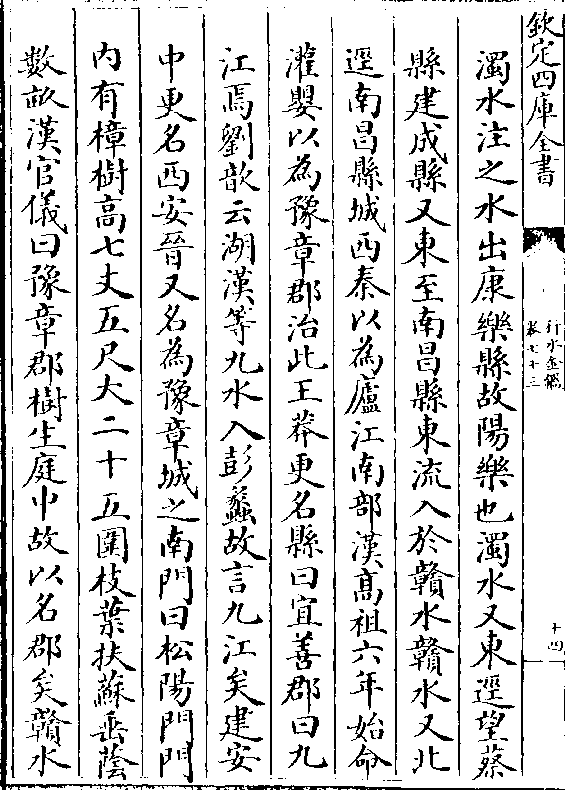 欽定四庫全書
行水金鑑
卷七十三
十四
濁水注之水出康樂縣故陽樂也濁水又東逕望蔡
縣建成縣又東至南昌縣東流入於贛水贛水又北
逕南昌縣城西秦以為廬江南部漢高祖六年始命
灌嬰以為豫章郡治此王莽更名縣曰宜善郡曰九
江焉劉歆云湖漢等九水入彭蠡故言九江矣建安
中更名西安晉又名為豫章城之南門曰松陽門門
内有樟樹高七丈五尺大二十五圍枝葉扶蘇垂蔭
數畝漢官儀曰豫章郡樹生庭中故以名郡矣贛水